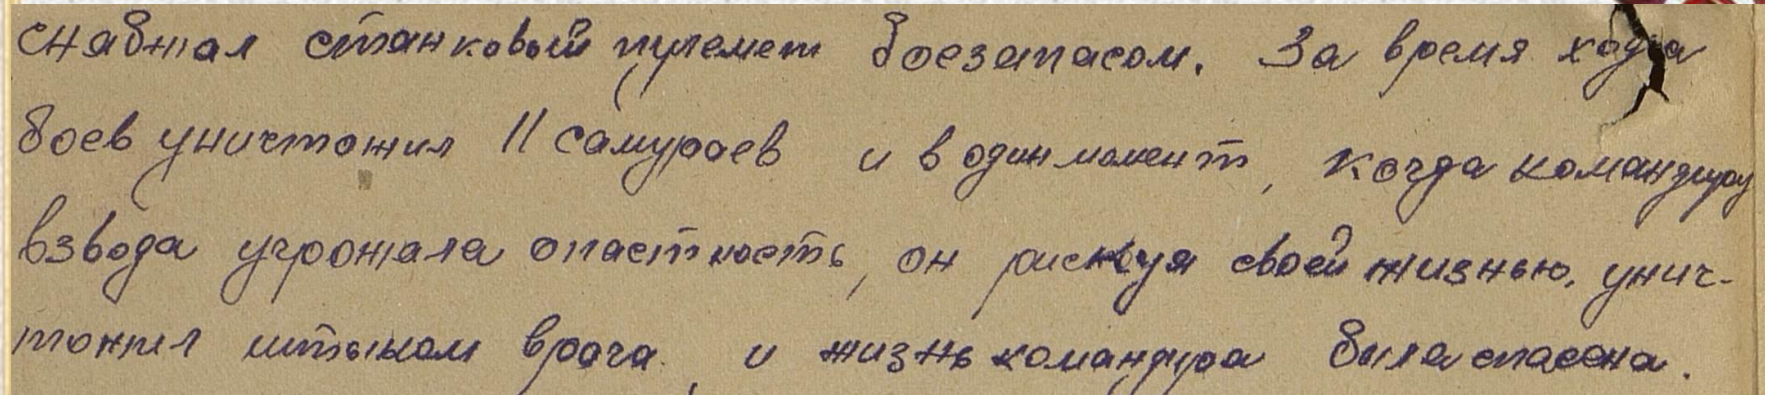 снабжал станковый пулемет боезапасом. За время хода
боев уничтожил 11 самураев и в один момент, когда командиру
взвода угрожала опастность, он рискуя своей жизнью, унич-
тожил штыком врага, и жизнь командира была спасена.